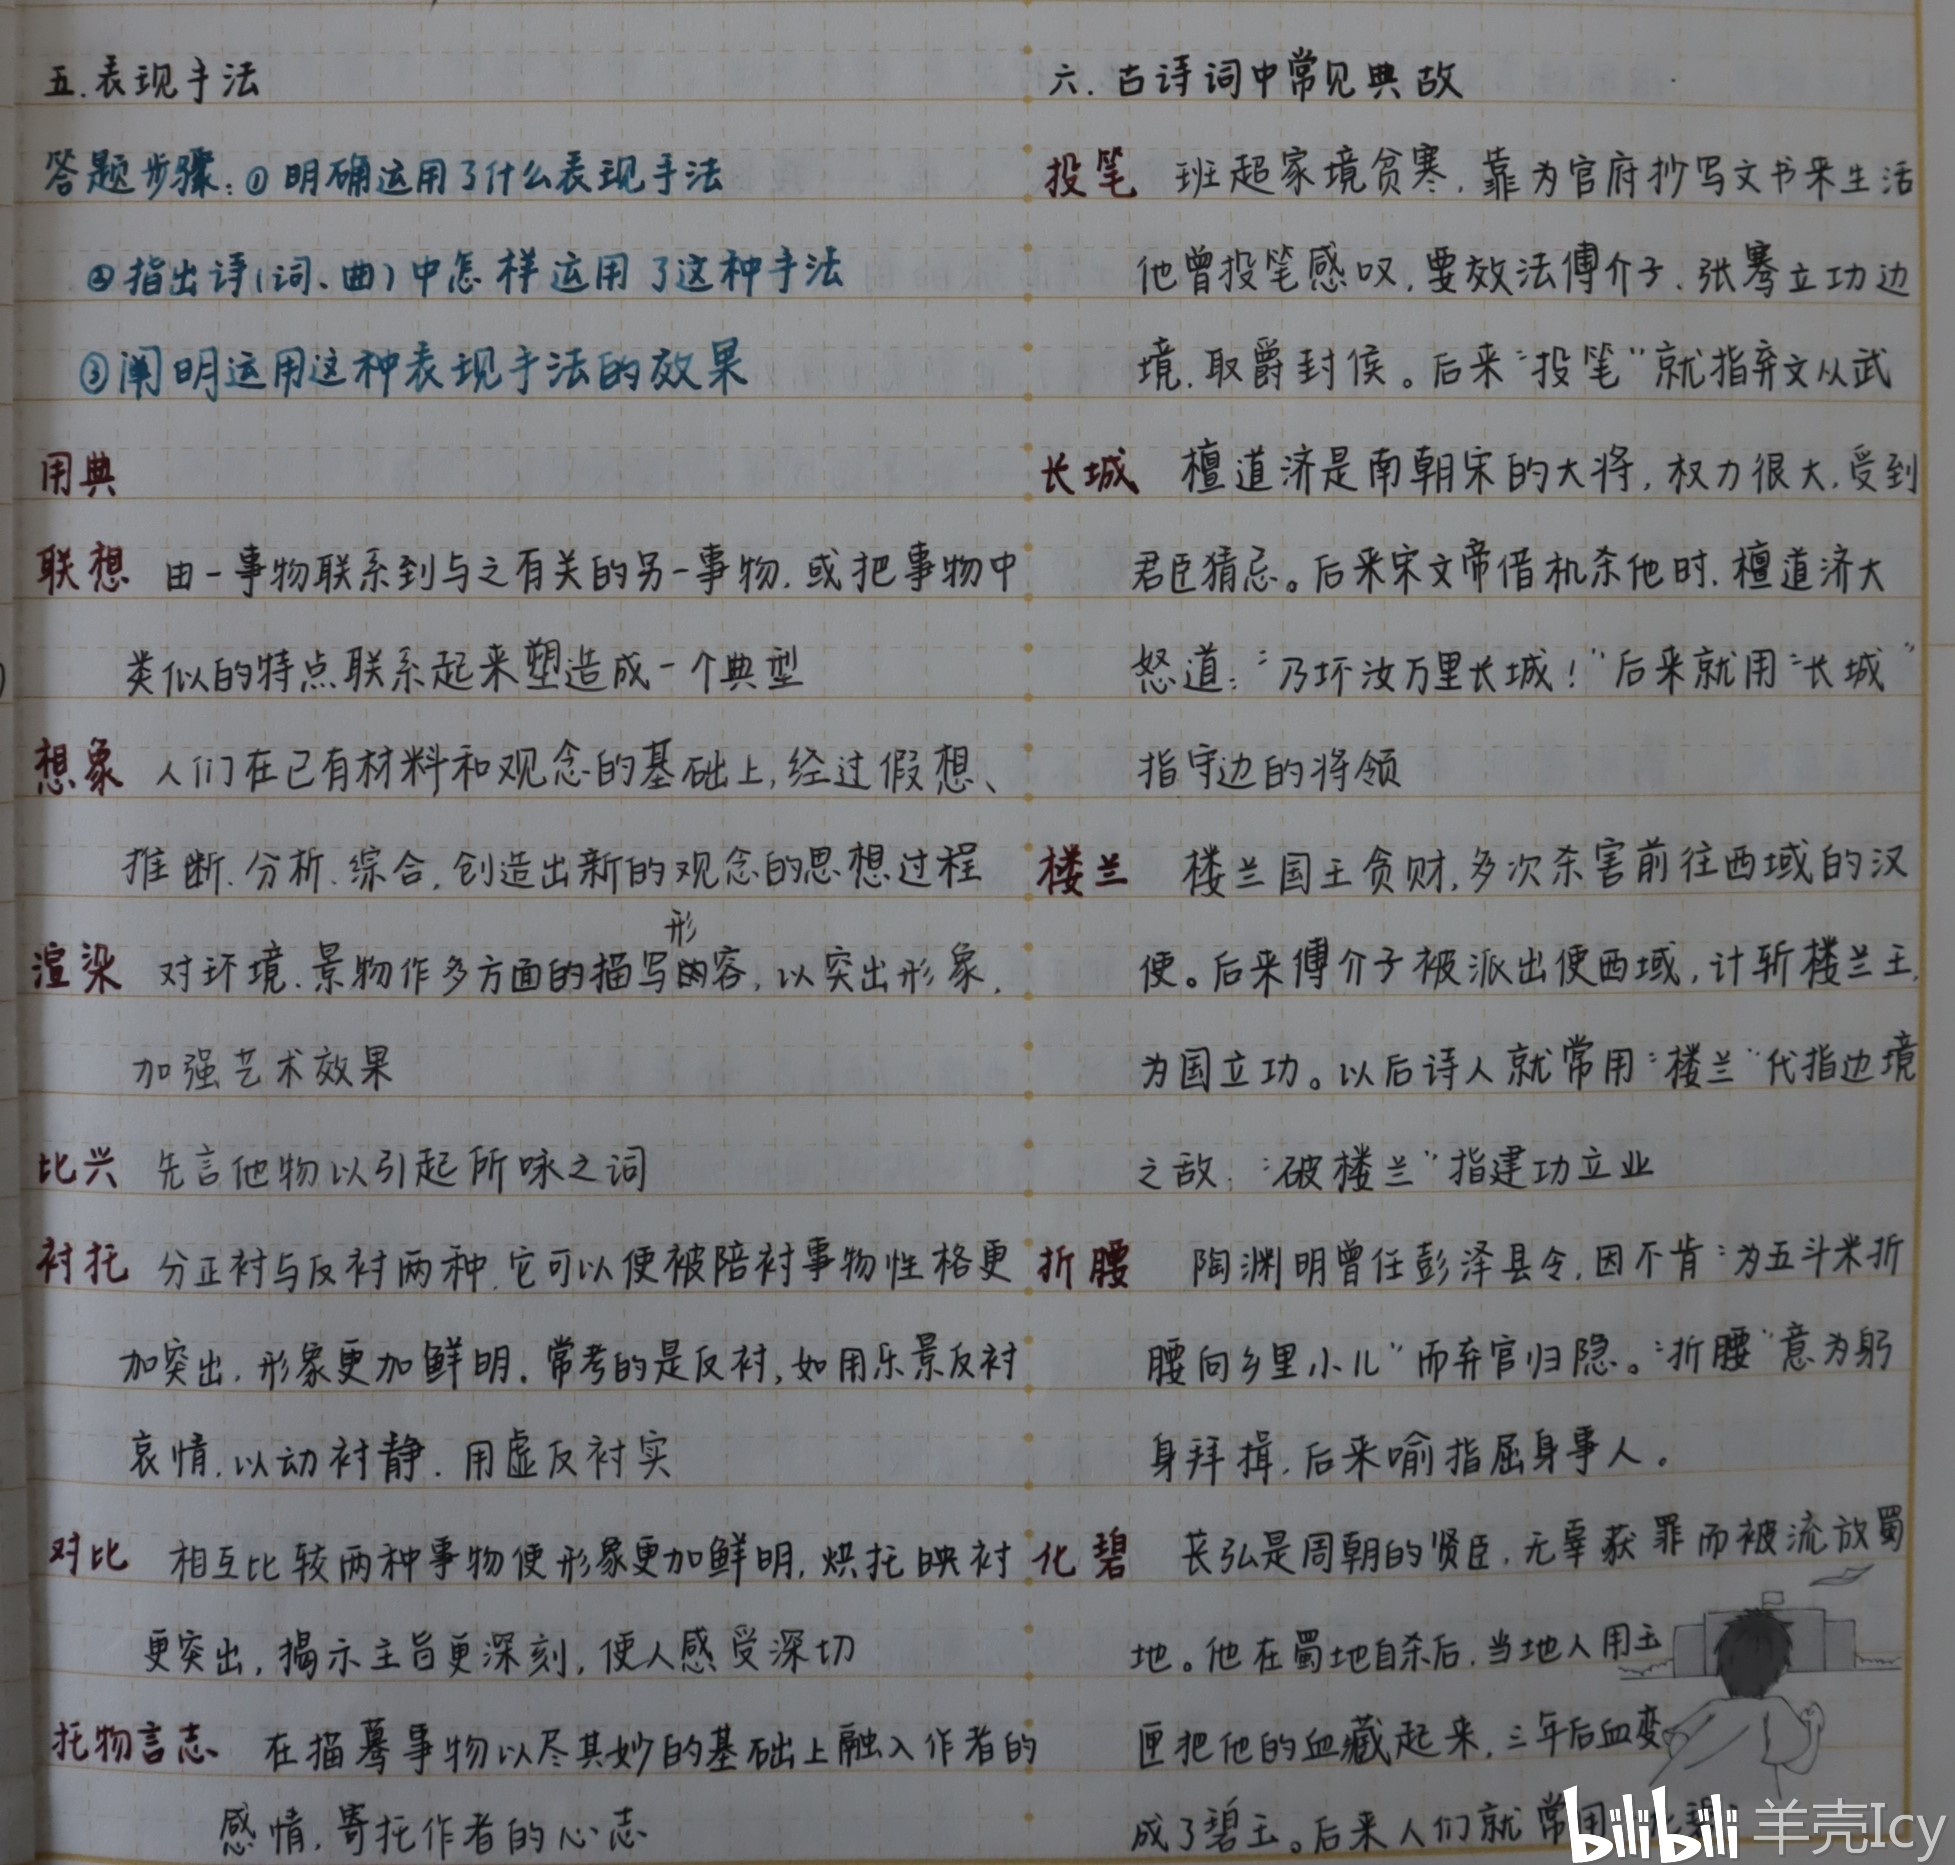 五.表现手法
答题步骤:①明确运用了什么表现手法
②指出诗(词、曲)中怎样运用了这种手法
③阐明运用这种表现手法的效果
用典
联想 由一事物联系到与之有关的另一事物.或把事物中
类似的特点联系起来塑造成一个典型
想象 人们在已有材料和观念的基础上,经过假想、
推断.分析.综合,创造出新的观念的思想过程
形
渲染 对环境.景物作多方面的描写内容,以突出形象,
加强艺术效果
比兴 先言他物以引起所咏之词
衬托 分正衬与反衬两种.它可以使被陪衬事物性格更
加突出,形象更加鲜明。常考的是反衬,如用乐景反衬
哀情,以动衬静.用虚反衬实
对比 相互比较两种事物使形象更加鲜明,烘托映衬
更突出,揭示主旨更深刻,使人感受深切
托物言志 在描摹事物以尽其妙的基础上融入作者的
感情,寄托作者的心志
六.古诗词中常见典故
投笔 班超家境贫寒,靠为官府抄写文书来生活
他曾投笔感叹,要效法傅介子.张骞立功边
境,取爵封侯。后来“投笔”就指弃文从武
长城 檀道济是南朝宋的大将,权力很大,受到
君臣猜忌。后来宋文帝借机杀他时,檀道济大
怒道:“乃坏汝万里长城!”后来就用“长城”
指守边的将领
楼兰 楼兰国王贪财,多次杀害前往西域的汉
使。后来傅介子被派出使西域,计斩楼兰王,
为国立功。以后诗人就常用“楼兰”代指边境
之敌;“破楼兰”指建功立业
折腰 陶渊明曾任彭泽县令,因不肯“为五斗米折
腰向乡里小儿”而弃官归隐。“折腰”意为躬
身拜揖,后来喻指屈身事人。
化碧 苌弘是周朝的贤臣,无辜获罪而被流放蜀
地。他在蜀地自杀后,当地人用玉
匣把他的血藏起来,三年后血变
成了碧玉。后来人们就常用
bilibili 羊壳Icy